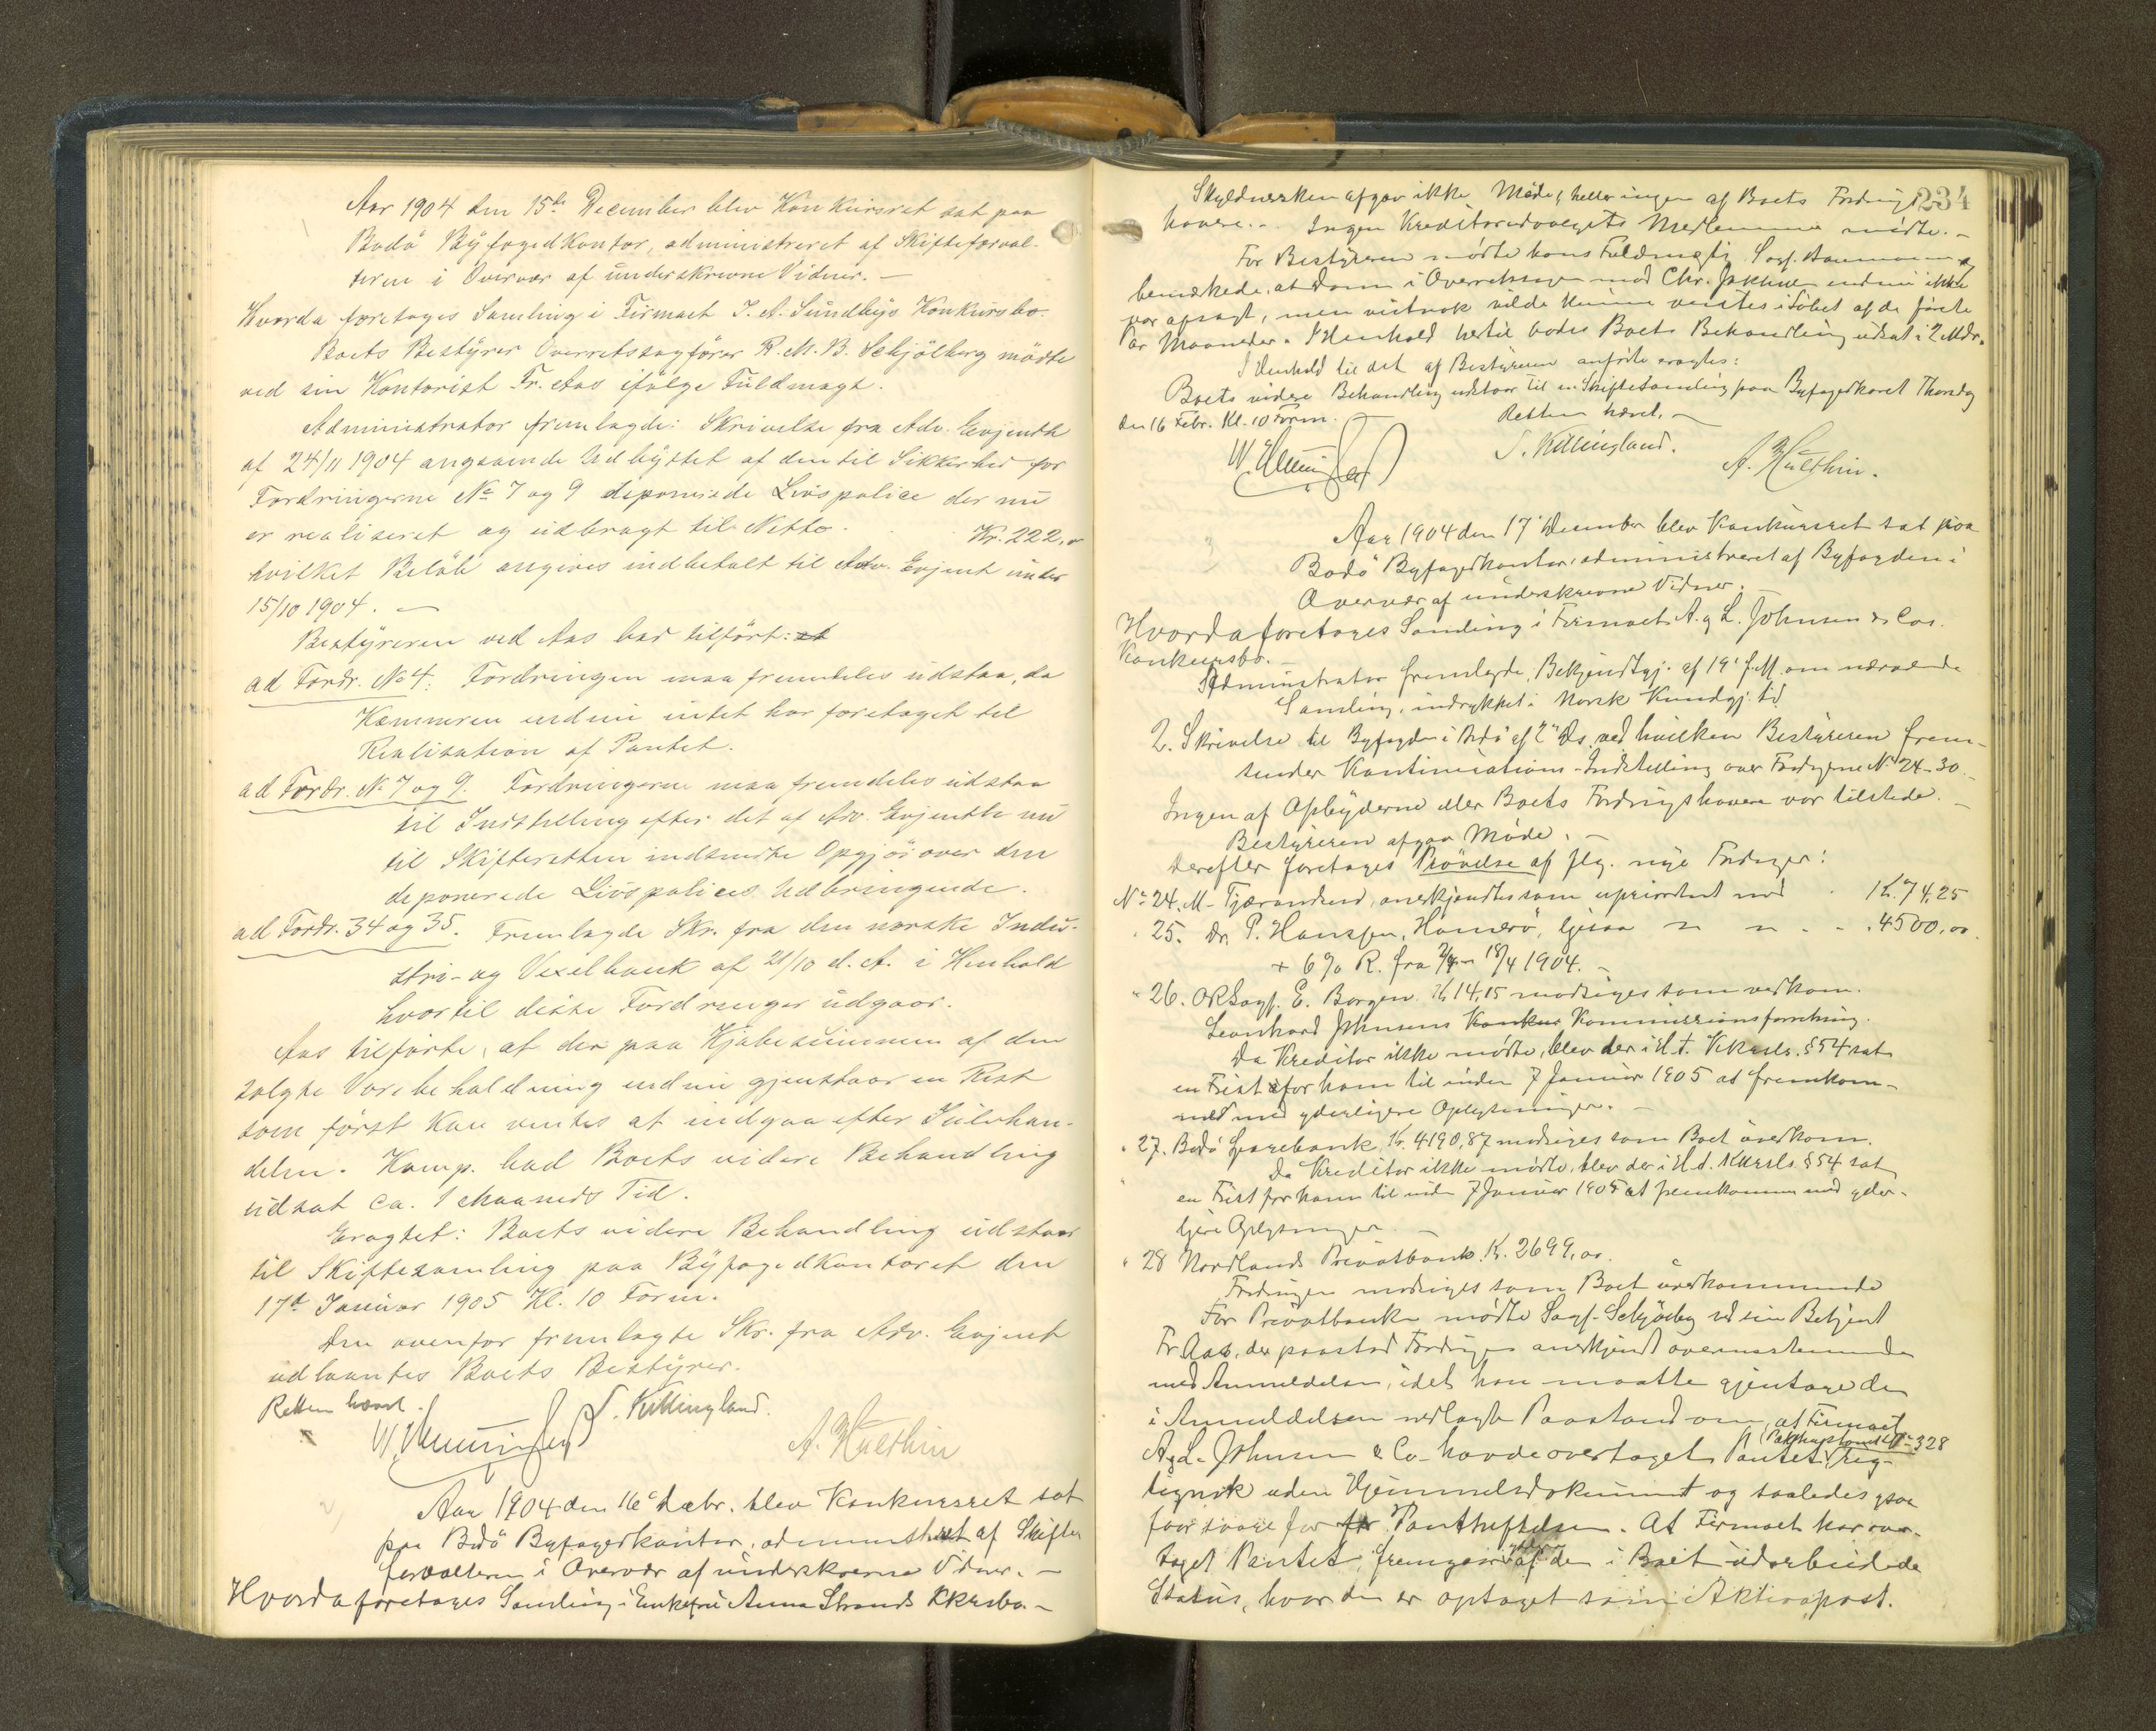 Aar 1904 den 15de December blev Konkursret sat paa
Bodö Byfogedkontor, administreret af Skifteforval-
teren i Overvær af underskrevne Vidner. —
Hvorda foretoges Samling i Firmaet J. A. Sundbys Konkursbo.
Boets Bestyrer Overretssagförer R. M. B. Schjölberg mödte
ved sin Kontorist Fr. Aas ifölge Fuldmagt.
Administrator fremlagde: Skrivelse fra Adv. Evjenth
af 24/11 1904 angaaende Udbyttet af den til Sikkerhed for
Fordringerne No 7 og 9 deponerede Livspolice der nu
er realiseret og udbragt til Netto. Kr. 222,
hvilket Belöb angives indbetalt til Adv. Evjent under
15/10 1904. —
Bestyreren ved Aas bad tilfört: at
ad Fordr. No 4: Fordringen maa fremdeles udstaa, da
Kæmneren endnu intet har foretaget til
Realisation af Pantet.
ad Fordr. No 7 og 9. Fordringerne maa fremdeles udstaa
til Indstilling efter det af Adv. Evjenth nu
til Skifteretten indsendte Opgjör over den
deponerede Livspolices Udbringende.
ad Fordr. 34 og 35. Fremlagde Skr. fra den norske Indu-
stri- og Vexelbank af 21/10 d. A. i Henhold
hvortil disse Fordringer udgaar.
Aas tilförte, at der paa Kjöbesummen af den
solgte Varebeholdning endnu gjenstaar en Rest
som först kan ventes at indgaa efter Julehan-
delen. Komp. bad Boets videre Behandling
udsat ca. 1 Maaneds Tid.
Eragtet: Boets videre Behandling udstaar
til Skiftesamling paa Byfogedkontoret den
17de Januar 1905 Kl. 10 Form.
Den ovenfor fremlagte Skr. fra Adv. Evjent
udlaantes Boets Bestyrer.
Retten hævet.
S. Killingland.
A. Hüethin
Aar 1904 den 16de Decbr. blev Konkursret sat
paa Bodö Byfogedkontor, administreret af Skifte
forvalteren i Overvær af underskrevne Vidner. —
Hvorda foretoges Samling i Enkefru Anna Strands Kkursbo. —
234
Skyldnersken afgav ikke Möde, heller ingen af Boets Fordrings
havere. . Ingen Kreditorudvalgets Medlemmer mödte. —
For Bestyreren mödte hans Fuldmægtig Sagf.
bemærkede, at Dom i Overretssagen mod Chr. Jakhelln endnu ikke
var afsagt, men vistnok vilde kunne ventes i Löbet af de förste
Par Maaneder. I Henhold hertil bades Boets Behandling udsat i 2 Mdr.
I Henhold til det af Bestyreren anförte eragtes:
Boets videre Behandling udstaar til en Skiftesamling paa Byfogedkoret Thorsdag
den 16 Febr. Kl. 10 Form.
Retten hævet. —
S. Killingland.
A. Hüethin.
Aar 1904 den 17' December blev Konkursret sat paa
Bodö Byfogedkontor, administreret af Byfogden i
Overvær af underskrevne Vidner.
Hvorda foretoges Samling i Firmaet A. & L. Johnsen & Cos.
Konkursbo. —
Administrator fremlagde, Bekjendtgj. af 19' f. M. om nærværende
Samling, indrykket i Norsk Kundgj. tid
2. Skrivelse til Byfogden i Bodö af 2' ds. ved hvilken Bestyreren frem-
sender Kontinuations-Indstilling over Fordrgerne No 24-30. —
Ingen af Opbyderne eller Boets Fordringshavere var tilstede. —
Bestyreren afgav Möde. —
Derefter foretoges Prövelse af flg. nye Fordrger:
No 24. M. Tjærandsend, anerkjendtes som uprioritert med Kr. 74,25
" 25. Dr. P. Hanssen, Hamerö, ligesaa " " . . . 4500,00.
+ 6% R. fra 18/4 1904. —
" 26. ORSagf. E. Borgen. Kr 14,15 modsiges som vedkom.
Leonhard Johnsens Konkur Kommissionsforretning.
Da Kreditor ikke mödte, blev der i H. t. Kkursl. § 54 sat
en Frist for ham til inden 7 Januar 1905 at fremkom-
me med yderligere Oplysninger. —
" 27. Bodö Sparebank, Kr. 4190,87 modsiges som Boet uvedkom.
Da Kreditor ikke mödte, blev der i H. t. Kkursl. § 54 sat
en Frist for ham til inden 7 Januar 1905 at fremkomme med yder-
ligere Oplysninger. —
" 28 Nordlands Privatbank. Kr. 2699,00
Fordringen modsiges som Boet uvedkommende
For Privatbanken mödte Sagf. Schjölberg ved sin Betjent
Fr Aas, der paastod Fordringen anerkjendt overensstemmende
med Anmeldelsen, idet han maatte gjentage den
i Anmeldelsen nedlagte Paastand om, at Firmaet
A. & L. Johnsen & Co. havde overtaget Pantet (Pakhustomt No 328) rig-
tignok uden Hjemmelsdokument og saaledes ogsaa
faar svare for for Pantheftelsen. At Firmaet har over-
taget Pantet, fremgaar af den i Boet udarbeidede
Status, hvor den er optaget som Aktivapost.